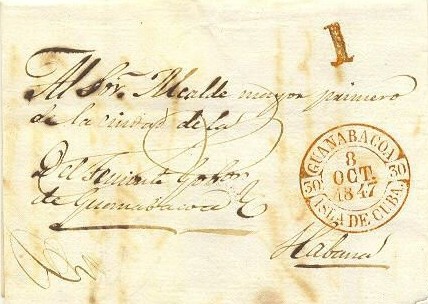 1
Al Sor. Alcalde mayor primero
de la ciudad de la
Del Teniente Gobor
de Guanabacoa
Habana
GUANABACOA
8
OCT.
1847
30
30
ISLA DE CUBA.